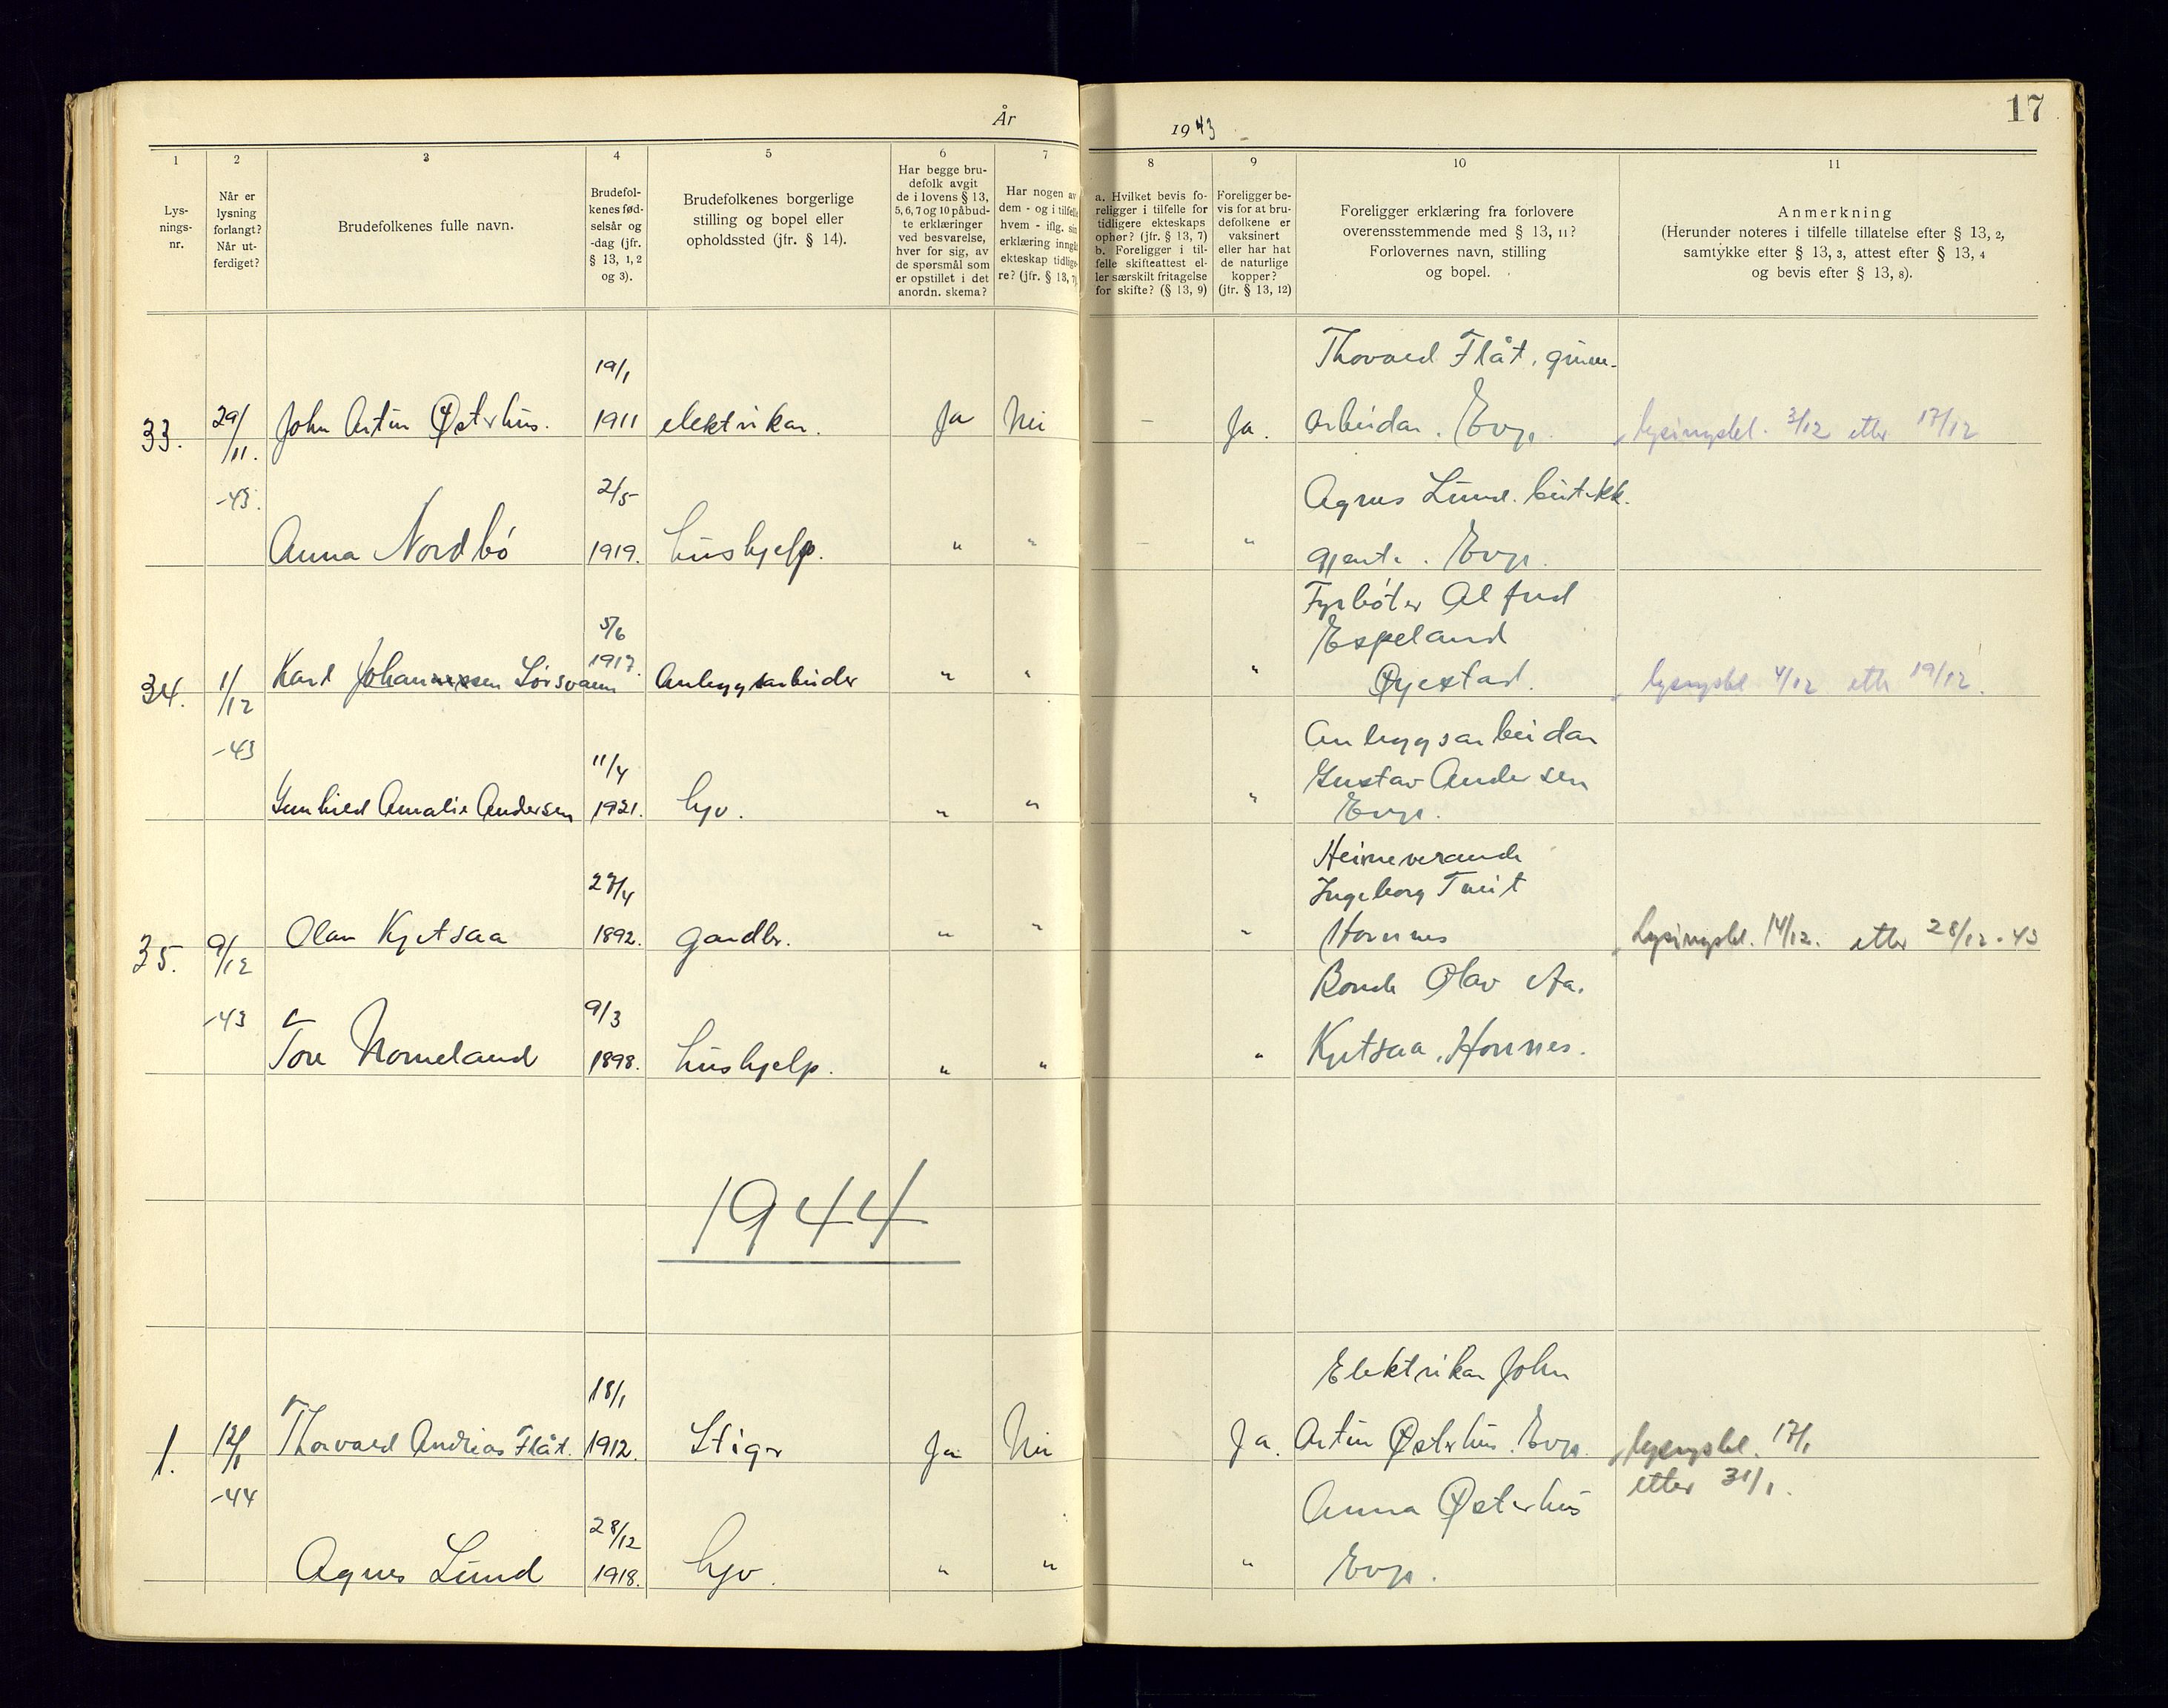 År 1943
17
1 2 3 4 5 6 7 8 9 10 11
Lys-
nings-
nr.
Når er
lysning
forlangt?
Når ut-
ferdiget?
Brudefolkenes fulle navn.
Brudefol-
kenes fød-
selsår og
-dag (jfr.
§ 13, 1, 2
og 3).
Brudefolkenes borgerlige
stilling og bopel eller
opholdssted (jfr. § 14).
Har begge bru-
defolk avgit
de i lovens § 13,
5, 6, 7 og 10 påbud-
te erklæringer
ved besvarelse,
hver for sig, av
de spørsmål som
er opstillet i det
anordn. skema?
Har nogen av
dem - og i tilfelle
hvem - iflg. sin
erklæring inngått
ekteskap tidlige-
re? (jfr. § 13, 7)
a. Hvilket bevis fo-
religger i tilfelle for
tidligere ekteskaps
ophør? (jfr. § 13, 7)
b. Foreligger i til-
felle skifteattest el-
ler særskilt fritagelse
for skifte? (§ 13, 9)
Foreligger be-
vis for at bru-
defolkene er
vaksinert
eller har hat
de naturlige
kopper?
(jfr. § 13, 12)
Foreligger erklæring fra forlovere
overensstemmende med § 13, 11?
Forlovernes navn, stilling
og bopel.
Anmerkning
(Herunder noteres i tilfelle tillatelse efter § 13, 2,
samtykke efter § 13, 3, attest efter § 13, 4
og bevis efter § 13, 8).
33. 29/11. -43.
John Artur Østerhus. 19/1 1911 elektrikar. Ja Nei - Ja.
Thovald Flåt, gruve-
arbeidar. Evje.
lysingsbl. 3/12 etter 17/12
Anna Nordbö 2/5 1919. hushjelp. " " "
Agnes Lund. butikk.
gjente. Evje.
34. 1/12 -43
Karl Johannessen Lörsvann 5/6 1917. Anleggsarbeider " " "
Fyrböter Alfred
Espeland
Øyestad.
lysingsbl 4/12 etter 19/12.
Gunhild Amalie Andersen 11/4 1921. hjv. " " "
Anleggsarbeidar
Gustav Andersen
Evje.
35. 9/12 -43
Olav Kjetsaa 27/4 1892. gardbr. " " "
Heimeverande
Ingeborg Tveit
Hornnes
Lysingsbl. 14/12. etter 28/12 - 43
Tore Homeland 9/3 1898. hushjelp. " " "
Bonde Olav Aa.
Kjetsaa, Hornnes.
1944
1. 12/1 -44
Thorvald Andreas Flåt. 18/1 1912. Stiger Ja Nei Ja.
Elektrikar John
Artur Østerhus. Evje.
lysingsbl. 17/1
etter 31/1.
Agnes Lund 28/12 1918. hjv. " " "
Anna Østerhus
Evje.